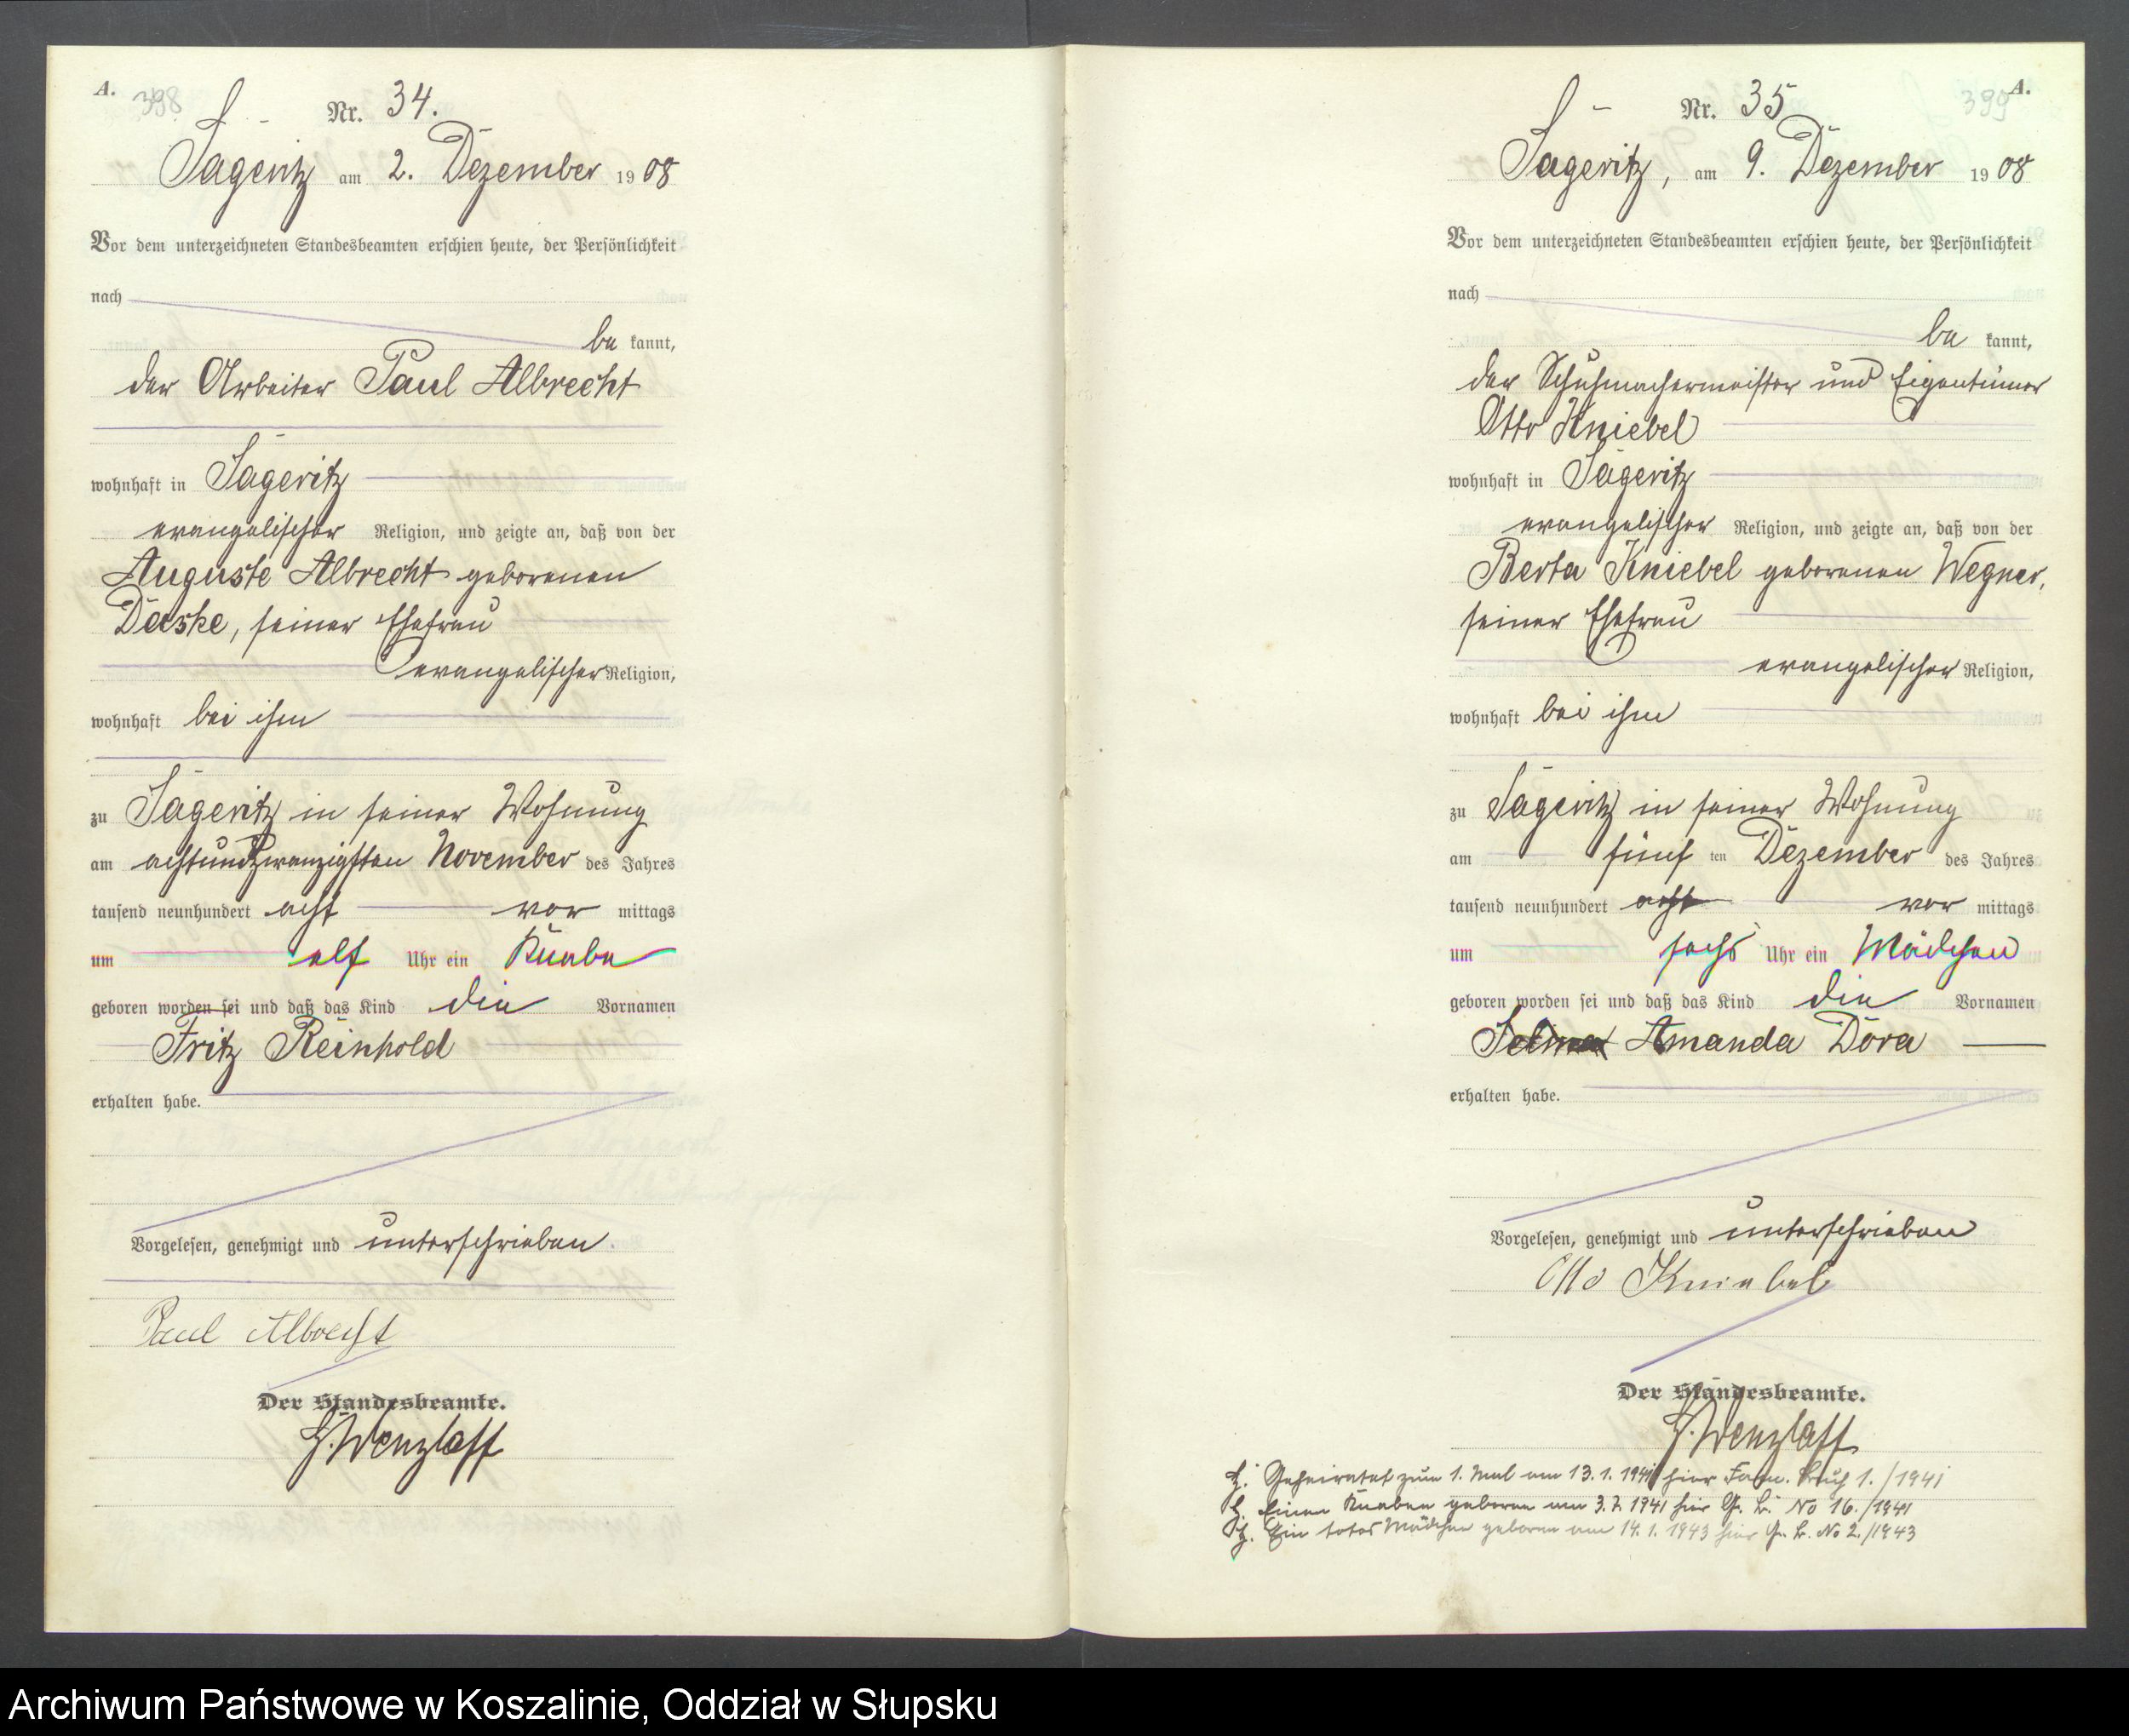 A.
398
Nr. 34.
Sageritz am 2. Dezember 1908
Vor dem unterzeichneten Standesbeamten erschien heute, der Persönlichkeit
nach
be kannt,
der Arbeiter Paul Albrecht
wohnhaft in Sageritz
evangelischer Religion, und zeigte an, daß von der
Auguste Albrecht geborenen
Daske, seiner Ehefrau
evangelischer Religion,
wohnhaft bei ihm
zu Sageritz in seiner Wohnung
am achtundzwanzigsten November des Jahres
tausend neunhundert acht vor mittags
um elf Uhr ein Knabe
geboren worden sei und daß das Kind die Vornamen
Fritz Reinhold
erhalten habe.
Vorgelesen, genehmigt und unterschrieben.
Paul Albrecht
Der Standesbeamte.
Wenzlaff
A.
399
Nr. 35
Sageritz, am 9. Dezember 1908
Vor dem unterzeichneten Standesbeamten erschien heute, der Persönlichkeit
nach
be kannt,
der Schuhmachermeister und Eigentümer
Otto Kniebel
wohnhaft in Sageritz
evangelischer Religion, und zeigte an, daß von der
Berta Kniebel geborenen Wegner,
seiner Ehefrau
evangelischer Religion,
wohnhaft bei ihm
zu Sageritz in seiner Wohnung
am fünf ten Dezember des Jahres
tausend neunhundert acht vor mittags
um sechs Uhr ein Mädchen
geboren worden sei und daß das Kind die Vornamen
Selma Amanda Dora
erhalten habe.
Vorgelesen, genehmigt und unterschrieben
Otto Kniebel
Der Standesbeamte.
Wenzlaff
Geheiratet zum 1. Mal am 13. 1. 1941 hier Fam. Buch 1./1941
Einen Knaben geboren am 3. 7. 1941 hier G. B. No 16./1941
Ein totes Mädchen geboren am 14. 1. 1943 hier G. B. No 2./1943
Archiwum Państwowe w Koszalinie, Oddział w Słupsku